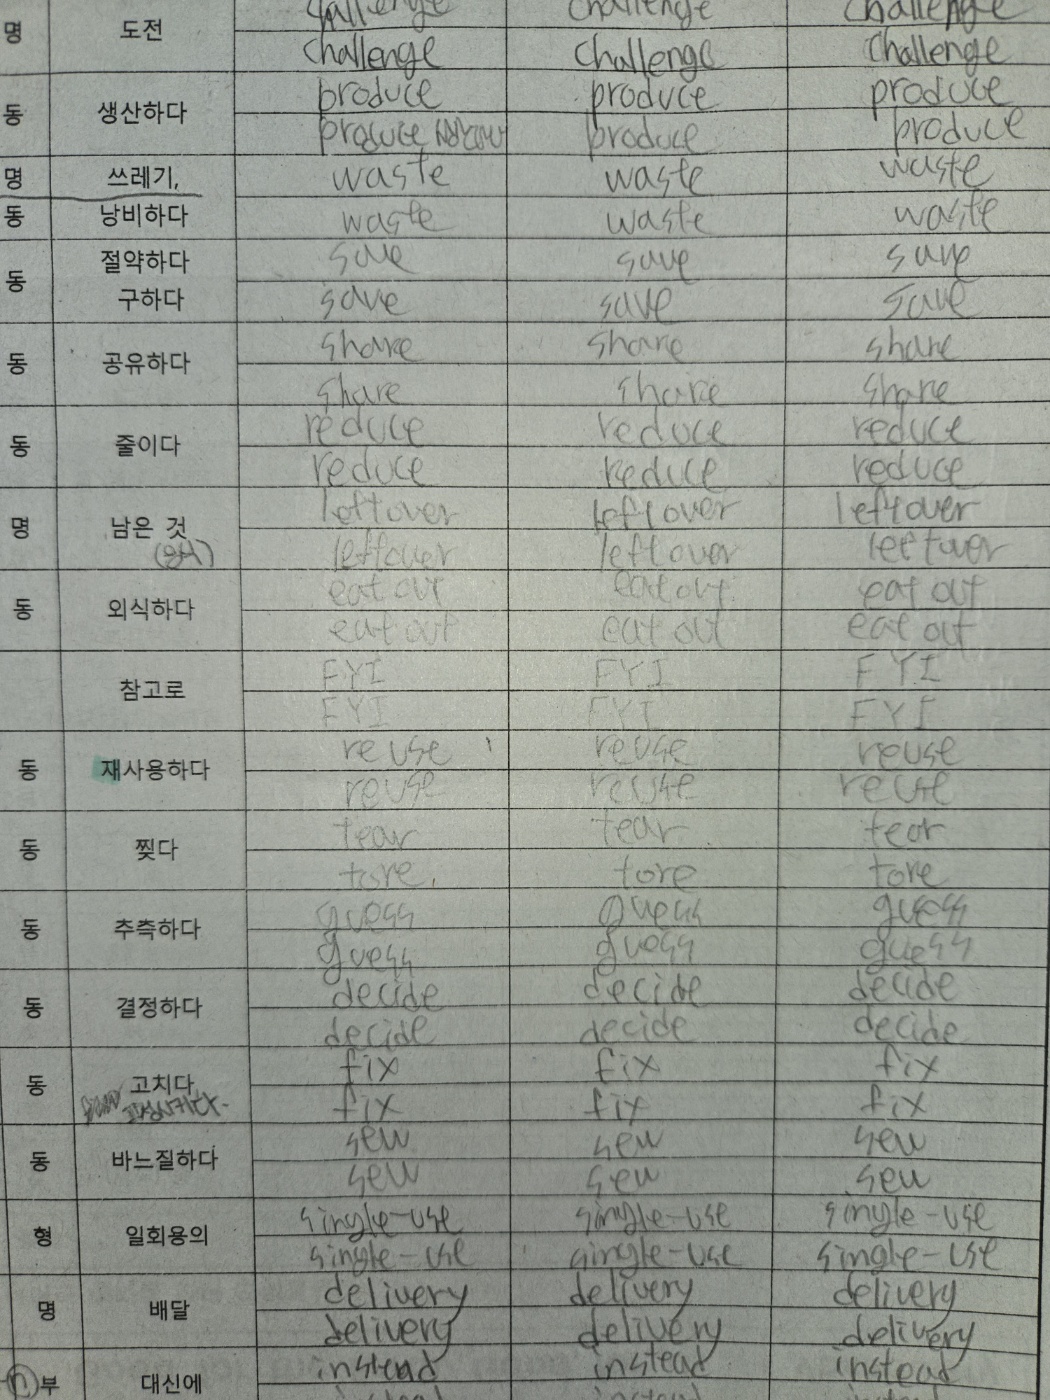 challenge challenge challenge
명 도전 challenge challenge challenge
produce produce produce
동 생산하다
produce produce produce
명 쓰레기, waste waste waste
동 낭비하다 waste waste waste
절약하다 save save save
동
구하다 save save save
share share share
동 공유하다
share share share
reduce reduce reduce
동 줄이다
reduce reduce reduce
leftover leftover leftover
명 남은 것
leftover leftover leftover
eat out eat out eat out
동 외식하다
eat out eat out eat out
FYI FYI FYI
참고로
FYI FYI FYI
reuse reuse reuse
동 재사용하다
reuse reuse reuse
tear tear tear
동 찢다
tore tore tore
guess guess guess
동 추측하다
guess guess guess
decide decide decide
동 결정하다
decide decide decide
fix fix fix
동 고치다
fix fix fix
sew sew sew
동 바느질하다
sew sew sew
single-use single-use single-use
형 일회용의
single-use single-use single-use
delivery delivery delivery
명 배달
delivery delivery delivery
instead instead instead
부 대신에